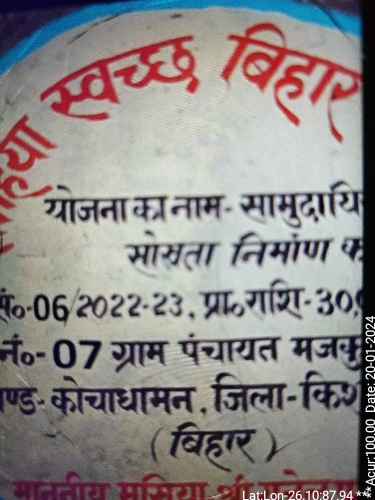 स्वच्छ बिहार
योजना का नाम- सामुदायि
सोख्ता निर्माण क
सं०-06/2022-23, प्रा०राशि-30,
नं०- 07 ग्राम पंचायत मजकु
ण्ड- कोचाधामन, जिला-किश
(बिहार)
माननीय मुखिया
Lat:Lon-26.10:87.94 ***Acur:100.00 Date: 20-01-2024